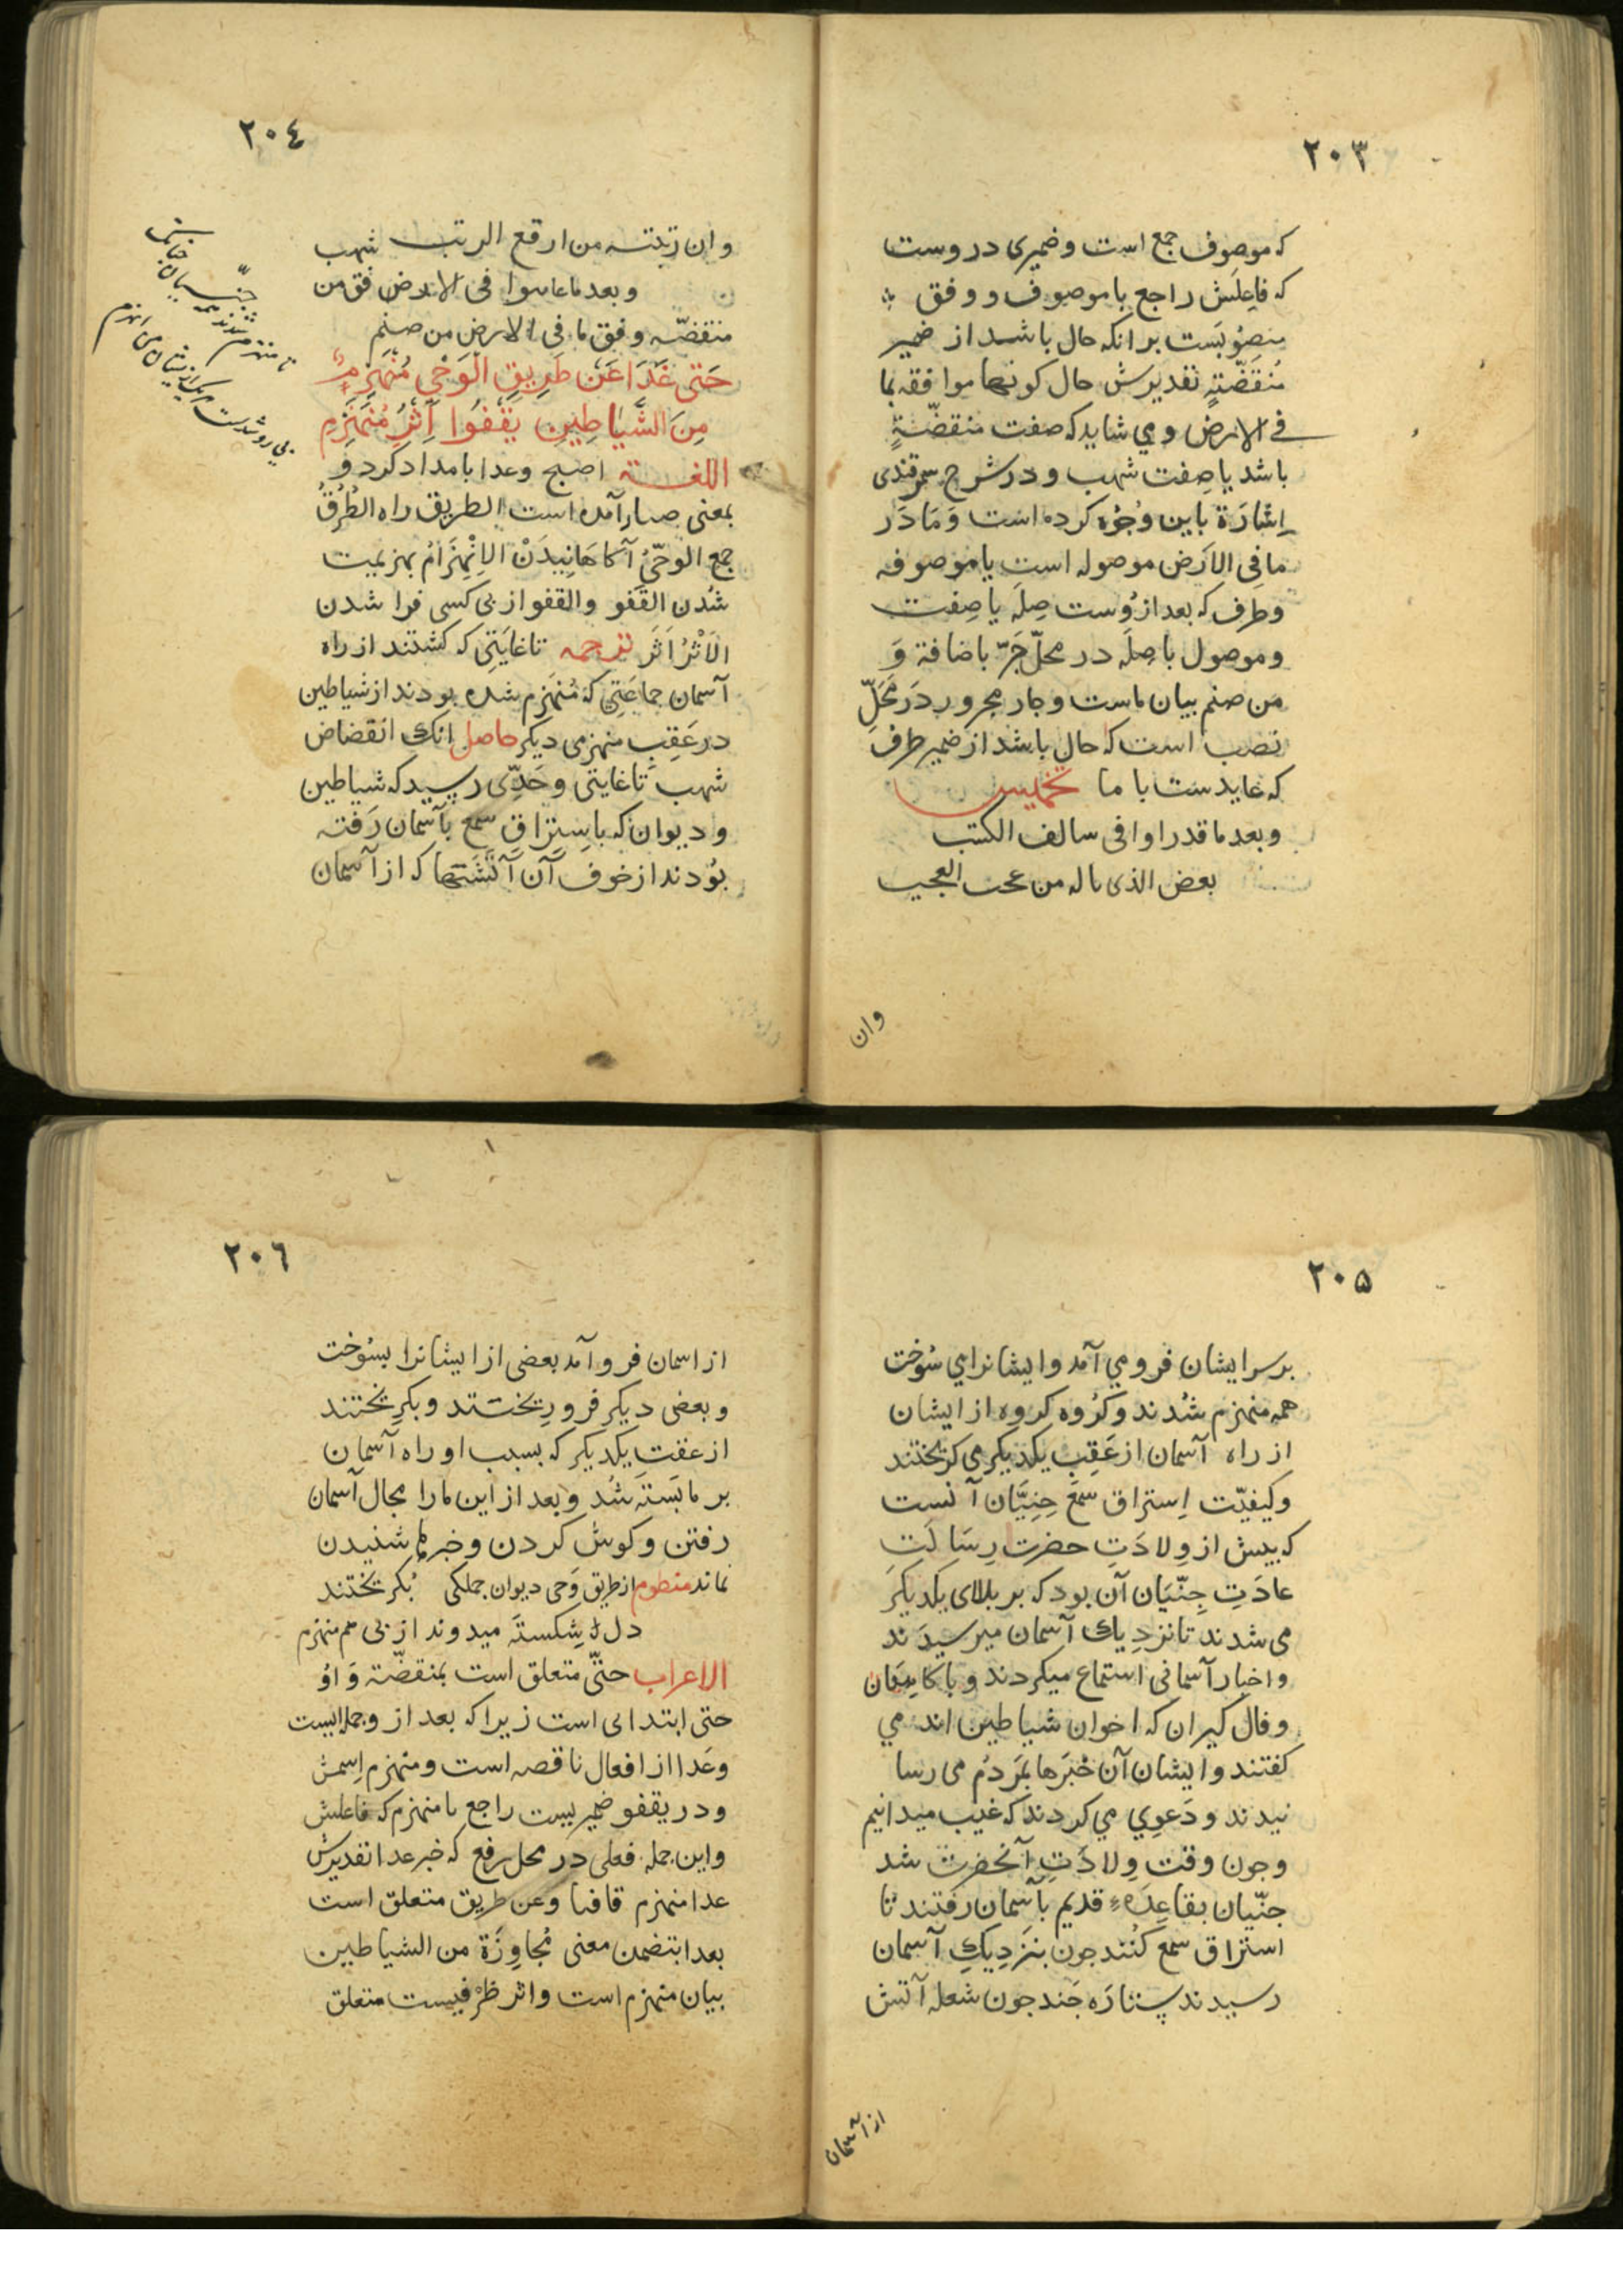 ٢٠٣
که موصوف جمع است وضمیری دروست
که فاعِلش راجع با موصوف و وفق
منصُوبَست برانکه حال باشد از ضمیر
مُنقَضّةٍ تقدیرش حال کونها موافقه بما
فے الارض ومي شاید که صفت منقضّةٍ
باشد یا صِفت شهب و در شرح سمرقندی
اِشارَة باین وُجُوه کرده است وَمَا دَر
ما فِی الاَرَض موصوله است یا موصوفه
وظرف که بعد ازوُست صِلَه یا صِفت
وموصول باصِلَه در محلّ جَرّ باضافة وَ
من صنم بیان ماست وجار مجرور دَر مَحَلِّ
نصب است که حال باشد از ضمیر ظرف
که عایدست با ما تخمیس
وبعد ما قدراوا فی سالف الکتب
بعض الذی ماله من عجب العجیب
وان
٢٠٤
وان رتبته من ارفع الرتب شهب
وبعد ما عاینوا فی الارض فق من
منقضّه وفق ما فی الارض من صنم
حَتی غَدَا عَن طَرِیقِ الوَحْیِ مُنهَزِمٌ
مِنَ الشَّیَاطِینِ یَقْفُوا اَثَرَ مُنهَزِمِ
اللغـــة اصبح وغدا بامداد کرد و
بمعنی صار آمده است الطریق راه الطُرُقُ
جمع الوحیُ آکاهَانِیدَن الاِنْهِزَامُ بهزیمت
شُدن القَفو والقفو از پی کسی فرا شدن
الاَثْرُ اَثَر ترجمه تا غایَتِی که کشتند از راه
آسمان جماعَتِی که مُنهَزم شده بودند از شیاطین
در عَقِبِ منهزمی دیکر حاصل انک انقضاض
شهب تا غایتی وحَدِّی رسید که شیاطین
و دیوان که باِستِرَاق سمع بآسمان رَفته
بوُدند از خوف آن آتَشَتها که از آسمان
تا منهزم شدند همه جنّیان
٢٠٥
بر سر ایشان فرو مي آمد وایشانرا می سُوخت
همه منهزم شُدند وکرُوه کروه از ایشان
از راه آسمان از عَقِبِ یکدیکر می کریختند
وکیفیّت اِستراق سمع جِنِیَّان آنست
که پیش از وِلادَتِ حضرت رِسَالَت
عادَتِ جِنّیَان آن بود که بر بالای یکدیکرَ
می شدند تا نزدِیك آسمان میرسیدَند
واخبار آسمانی استماع میکردند و با کاهِنَان
وفال کیران که اخوان شیاطین اند می
کفتند وایشان آن خَبَرها بمَردُم می رسا
نیدند و دَعوِي مي کردند که غیب میدانیم
وچون وقت وِلادَتِ آنحضرت شد
جنّیان بقاعِدَهء قدیم بآسمان رفتند تا
استراق سمع کُنند چون بنَزدِیكِ آسمان
رسیدند ستارَه چَند چون شعله آتش
از آسمان
٢٠٦
از اسمان فرو آمد بعضی از ایشانرا بسُوخت
وبعضی دیکر فرو رِیختند و بکرِیختند
از عقبِ یکدیکر که بسبب او راه آسمان
بر ما بَستَه شُد وبعد از این مارا مجال آسمان
رفتن وکوش کردن وخبرها شنیدن
نماند منظوم از طریق وَحی دیوان جملکی بُکریختند
دل شِکستَه میدوند از پی هم منهزم
الاعراب حتّی متعلق است بمنقضّة وَاوُ
حتی ابتدای است زیرا که بعد از و جمله ایست
وغَدا از افعال ناقصه است ومنهزم اِسمش
ودر یقفو ضمیریست راجع با منهزم که فاعلش
واین جمله فعلی در محل رفع که خبر غدا تقدیرش
غدا منهزم قافیا وعن طریق متعلق است
بغدا بتضمن معنی مُجاوِزَة من الشیاطین
بیان منهزم است واثر ظَرْفیست متعلق